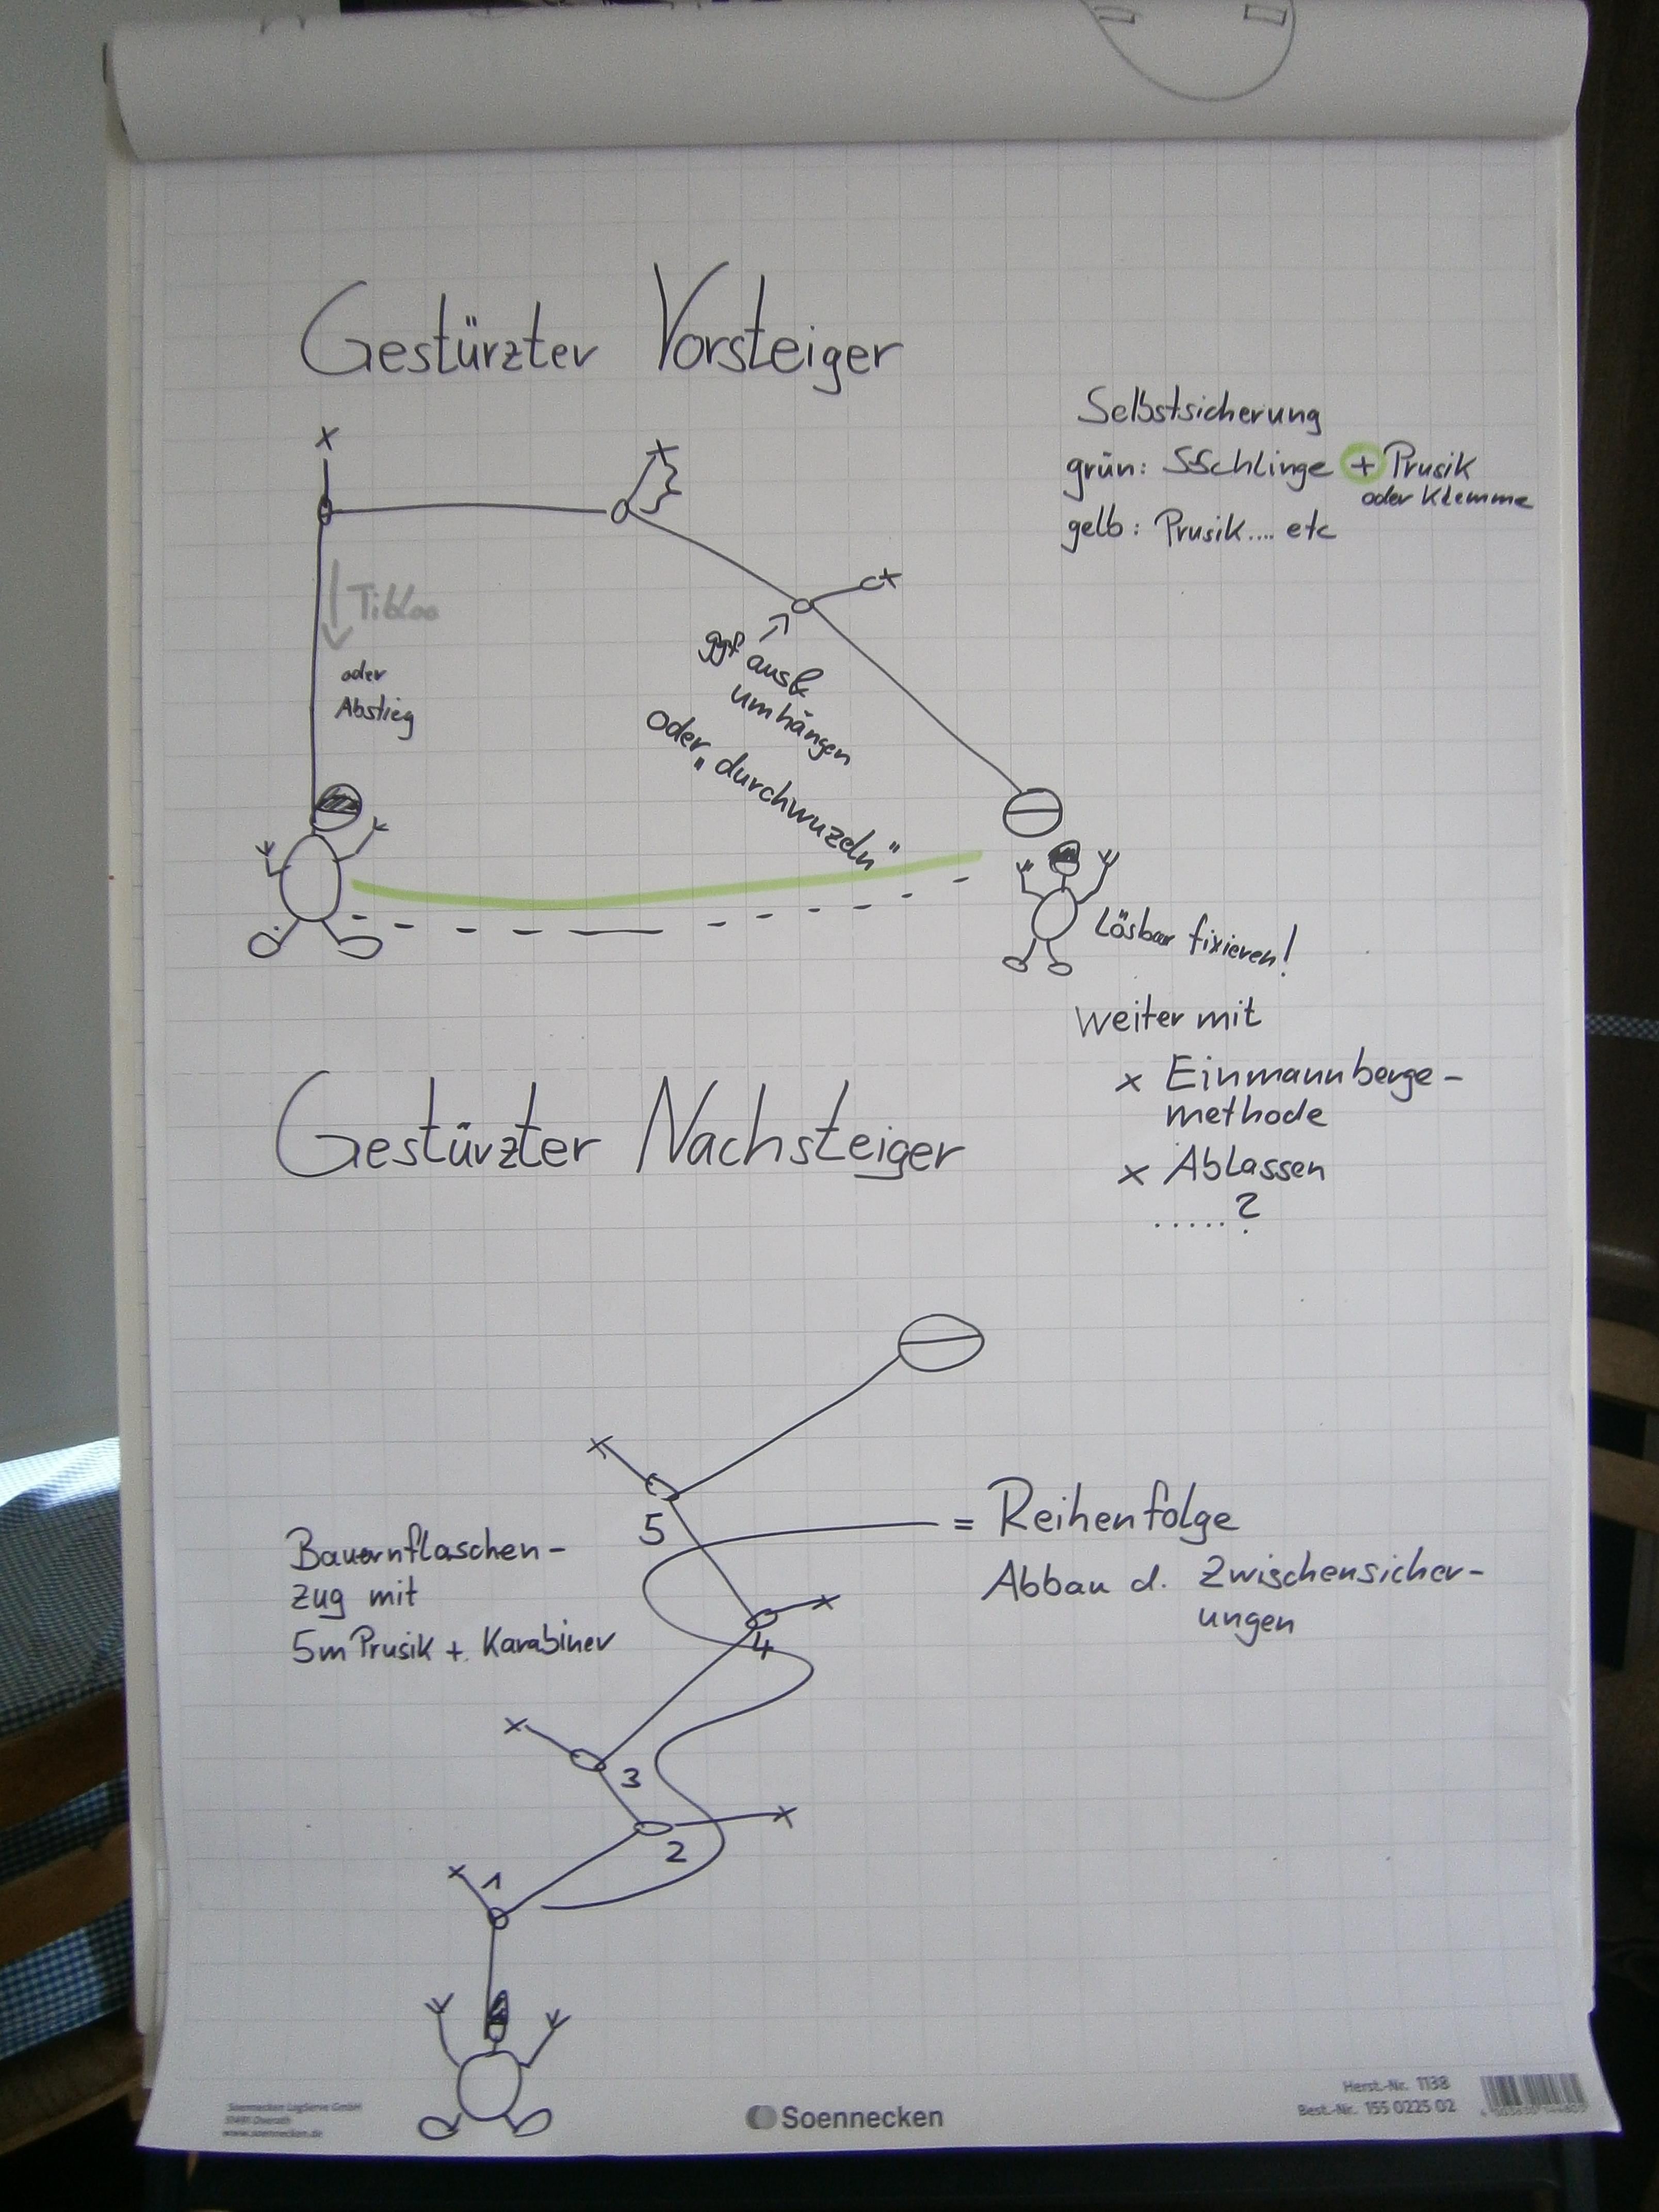 Gestürzter Vorsteiger
Selbstsicherung
grün: SSchlinge + Prusik
oder Klemme
gelb: Prusik.... etc
x
x
x
Tibloc
oder
Abstieg
ggf
umhängen
oder „durchwuzeln"
Lösbar fixieren!
Weiter mit
x Einmannberge-
methode
x Ablassen
.....?
Gestürzter Nachsteiger
5
= Reihenfolge
Abbau d. Zwischensicher-
ungen
Bauernflaschen-
zug mit
5m Prusik + Karabiner
4
3
2
1
Soennecken LogServ GmbH
51491 Overath
www.soennecken.de
Soennecken
Herst.-Nr. 1138
Best.-Nr. 155 0225 02